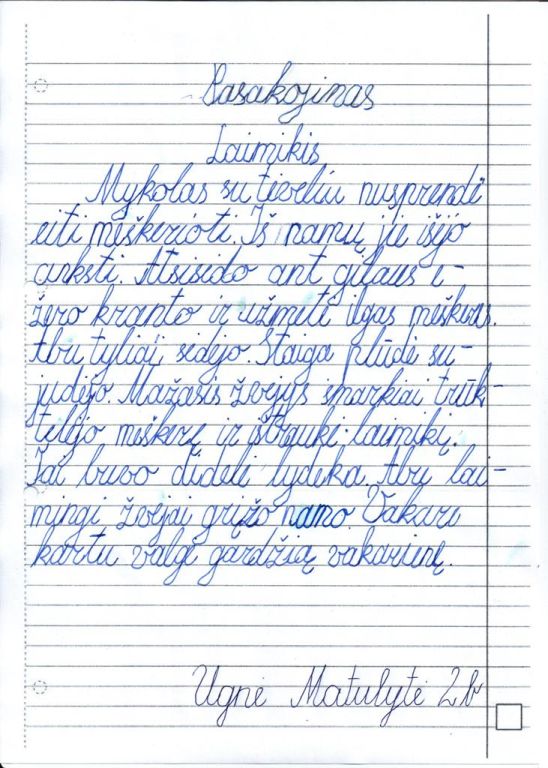 Pasakojimas
Laimikis
Mykolas su tėveliu nusprendė
eiti meškerioti. Iš namų jie išėjo
anksti. Atsisėdo ant gilaus e-
žero kranto ir užmetė ilgas meškeres.
Abu tyliai sėdėjo. Staiga plūdė su-
judėjo. Mažasis žvejys smarkiai trūk-
telėjo meškerę ir ištraukė laimikį.
Tai buvo didelė lydeka. Abu lai-
mingi žvejai grįžo namo. Vakare
kartu valgė gardžią vakarienę.
Ugnė Matulytė 2b